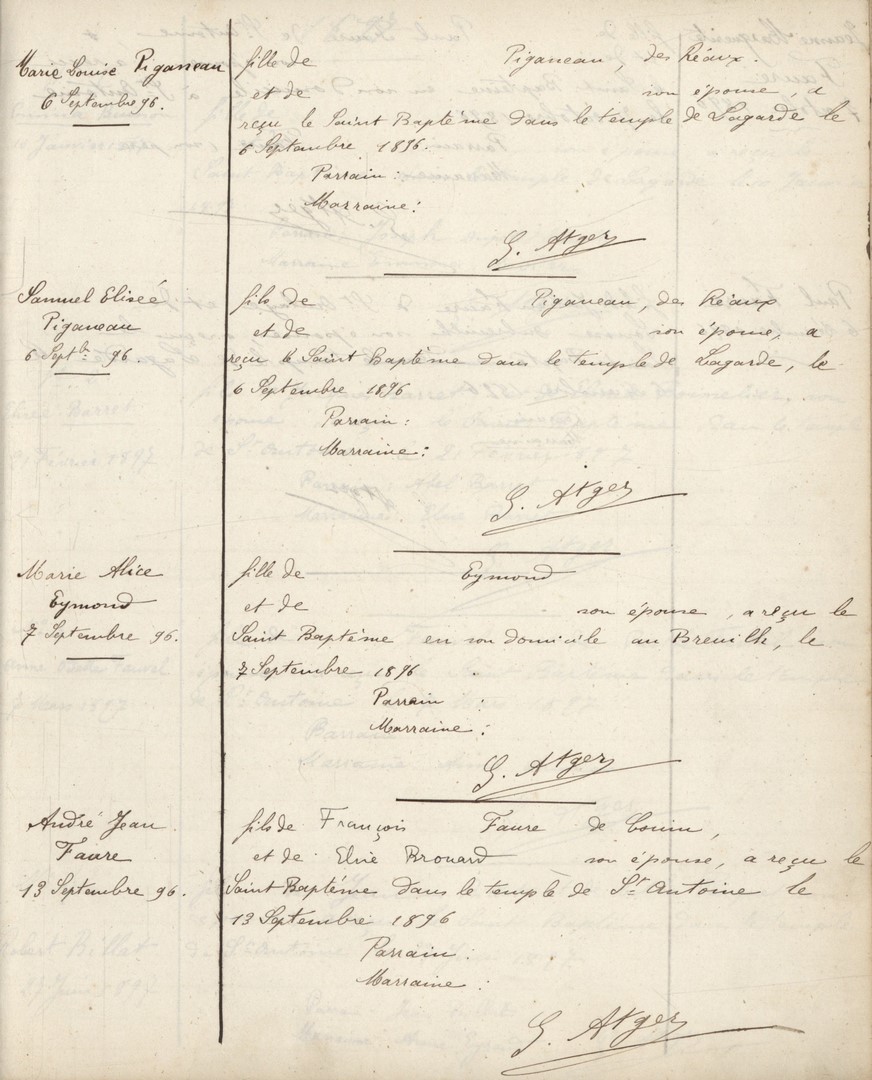 Marie Louise Piganeau
6 Septembre 96.
fille de Piganeau, des Réaux.
et de son épouse, a
reçu le Saint Baptême dans le temple de Lagarde le
6 Septembre 1896.
Parrain :
Marraine :
G. Atger
Samuel Eliséé
Piganeau
6 Septb. 96.
fils de Piganeau, des Réaux
et de son épouse, a
reçu le Saint Baptême dans le temple de Lagarde, le
6 Septembre 1896
Parrain :
Marraine :
G. Atger
Marie Alice
Eymond
7 Septembre 96.
fille de Eymond
et de son épouse, a reçu le
Saint Baptême en son domicile au Breuilh, le
7 Septembre 1896
Parrain :
Marraine :
G. Atger
André Jean
Faure
13 Septembre 96.
fils de François Faure de
et de Elsie Brouard son épouse, a reçu le
Saint Baptême dans le temple de St. Antoine le
13 Septembre 1896
Parrain :
Marraine :
G. Atger